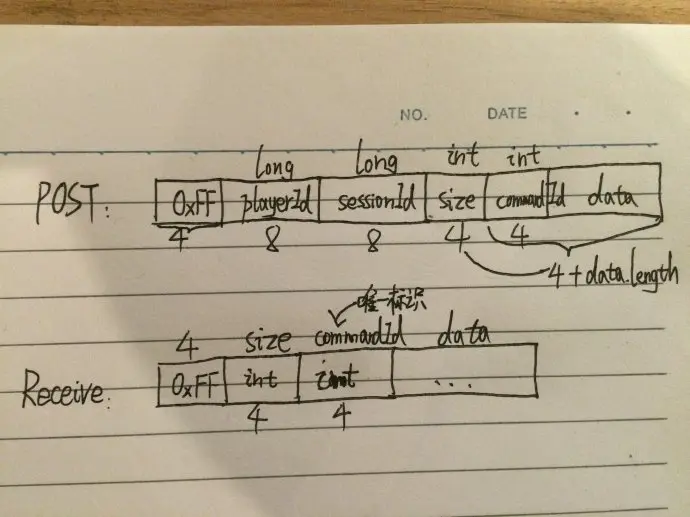 NO. DATE
long long int int
POST: 0xFF playerId sessionId size commandId data
4 8 8 4 4
4+data.length
唯一标识
4 size commandId data
Receive: 0xFF int int ...
4 4